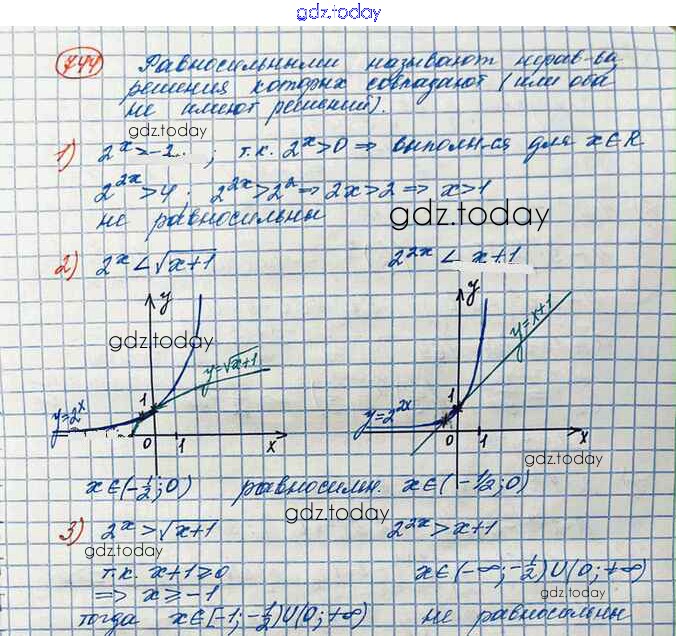 gdz.today
744 Равносильными называют нерав-ва
решения которых совпадают (или оба
не имеют решений).
gdz.today
1) 2^x > -2 ; т.к. 2^x > 0 ⇒ выполн-ся для x∈R
2^{2x} > 4 ; 2^{2x} > 2^2 ⇒ 2x > 2 ⇒ x > 1
не равносильны
gdz.today
2) 2^x < √(x+1) 2^{2x} < x+1
y y
gdz.today
y=√(x+1) y=x+1
1 1
y=2^x y=2^{2x}
0 1 x 0 1 x
gdz.today
x∈(-1/2; 0) равносильн. x∈(-1/2; 0)
gdz.today
3) 2^x > √(x+1) 2^{2x} > x+1
gdz.today
т.к. x+1 ≥ 0 x∈(-∞; -1/2)∪(0; +∞)
⇒ x ≥ -1
gdz.today
тогда x∈[-1; -1/2)∪(0; +∞) не равносильны